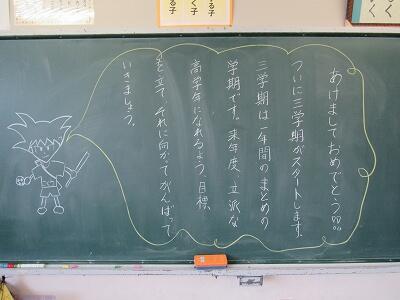 あけましておめでとう!!
ついに三学期がスタートします。
三学期は一年間のまとめの
学期です。来年度、立派な
高学年になれるよう、目標
を立て それに向かってがんばって
いきましょう。